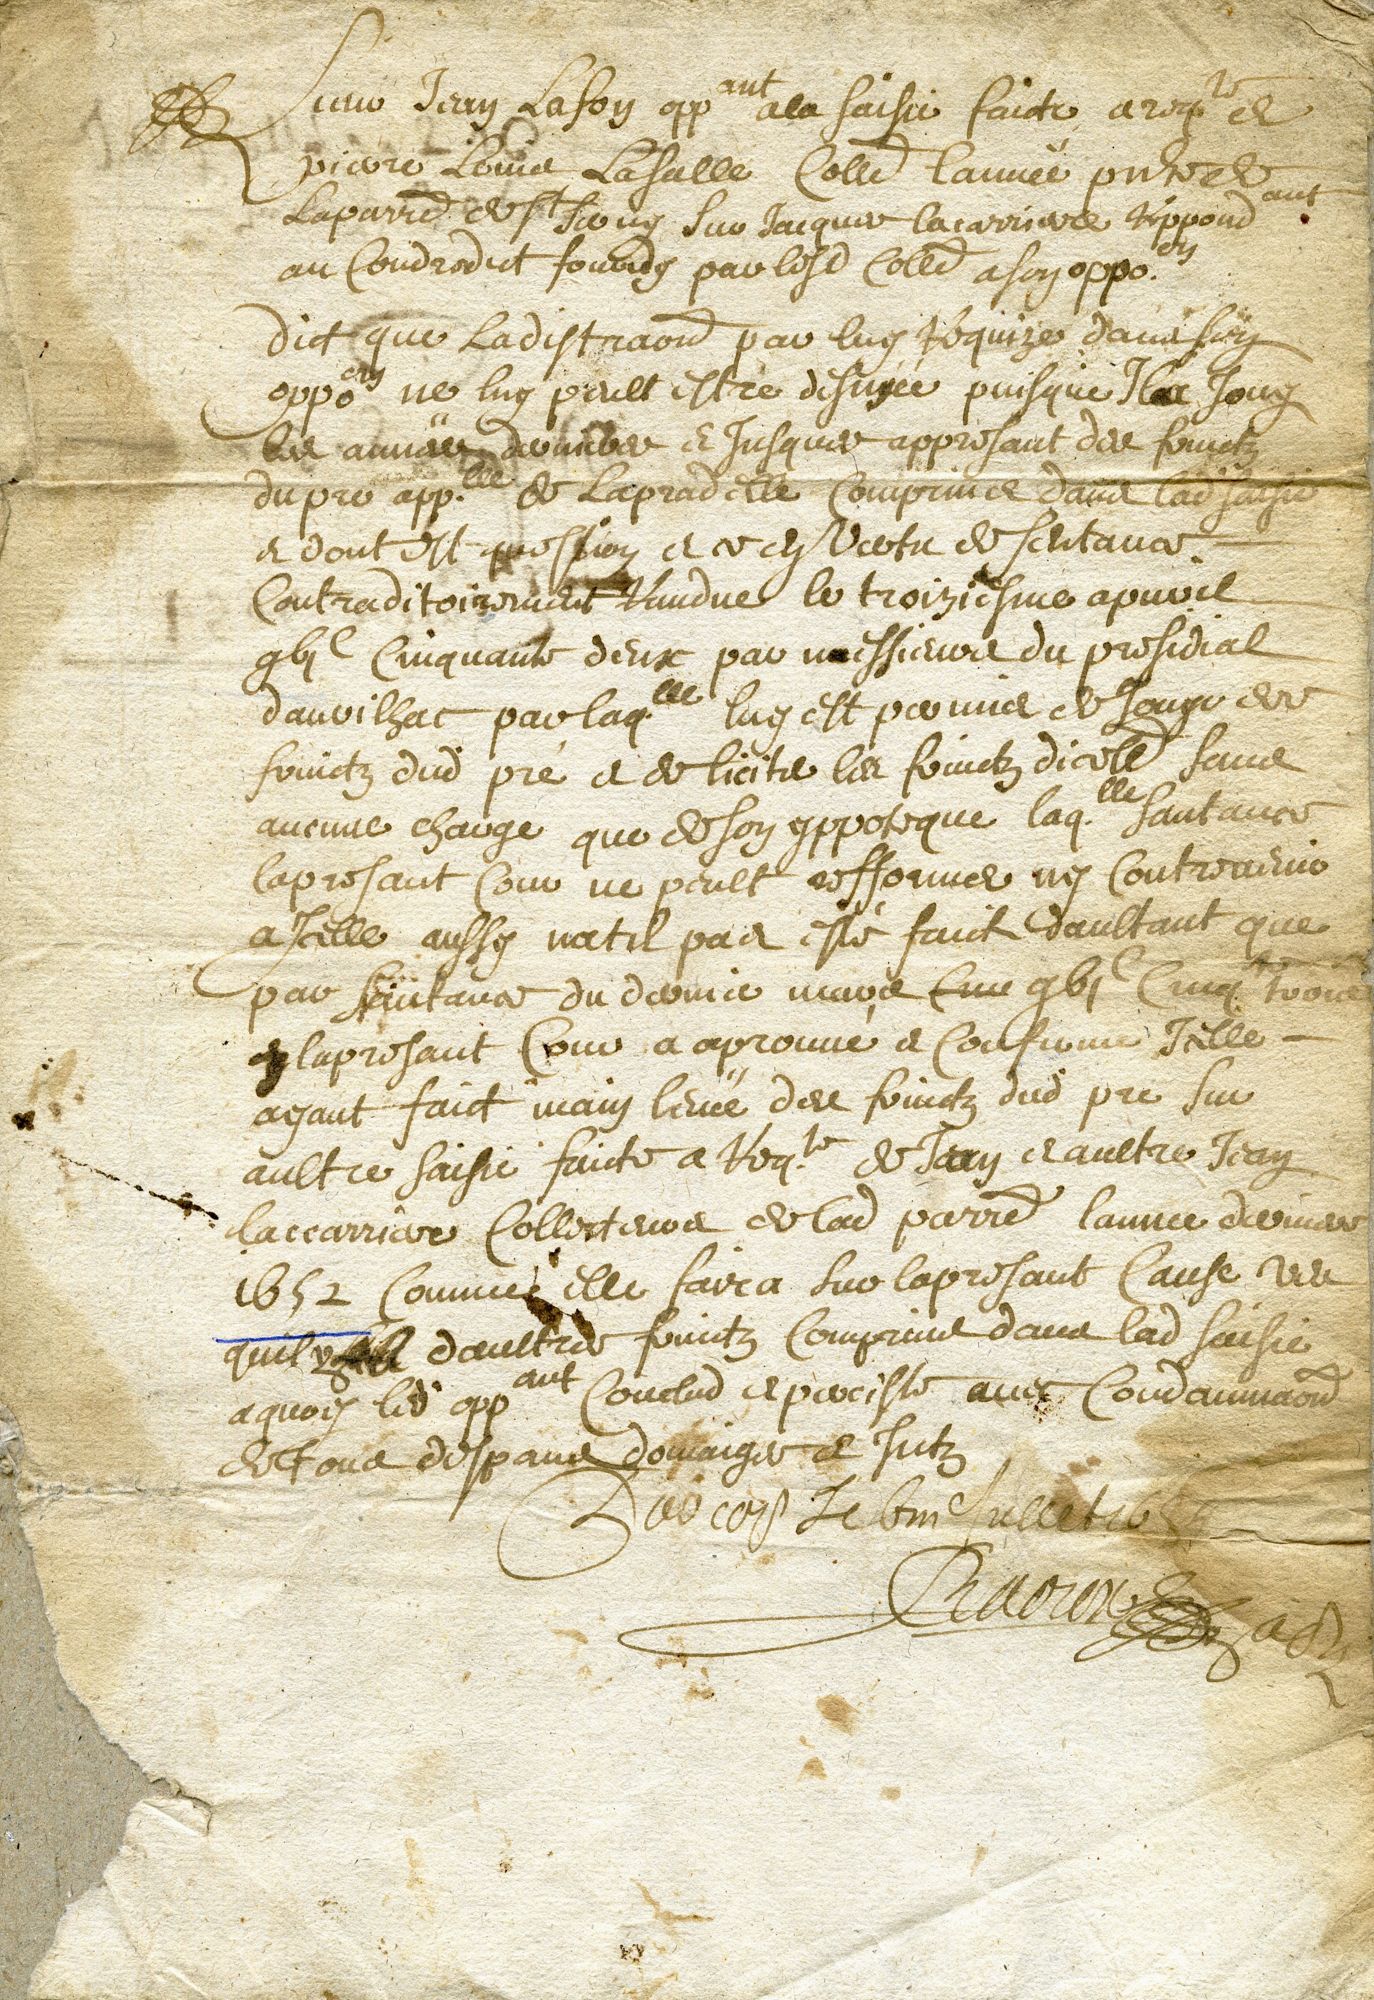 Jean Lafon opp.ant a la saisie faicte a req.te de
pierre Louis Lasalle Coll.r lannée pnte de
Laparre de St sur Jacques lacarriere Respond.ant
au Contredict fourny par lesd Coll a son oppo.on
Dict que Ladistraon par luy Requize dans son
oppo.on ne luy peult estre desnyée puisque Il a Jouy
les années dernieres & Jusques appresant des fruictz
du pre app.lle de Lapradelle Comprins dans lad saisie
& dont est question & ce en Vertu de sentance
Contraditoirement Randue le troiziesme apvril
gbjc Cinquante deux par messieurs du presidial
daurilhac par laq.lle luy est permis de Jouyr des
fruictz dud pré & de les fruictz dicelluy sans
aucune charge que de son yppoteque laq.lle santance
lapresant Cour ne peult refformer ny Contrevenir
a Jcelle aussy natil pas esté faict daultant que
par santance du dernier mars gbjc Cinq.te trois
lapresant Cour a aprouvé & Confirmé Jcelle
ayant faict main levée des fruictz dud pre sur
aultre saisie faicte a Req.te de Jean & aultre Jean
laccarriere Collecteurs de lad parre lannee derniere
1652 Comme elle faira sur lapresant Cause
quil daultres fruictz Comprins dans lad saisie
aquoy led opp.ant Conclud & perciste avec Condamnaon
de tous despans domaiges & Jntz
Le Juillet